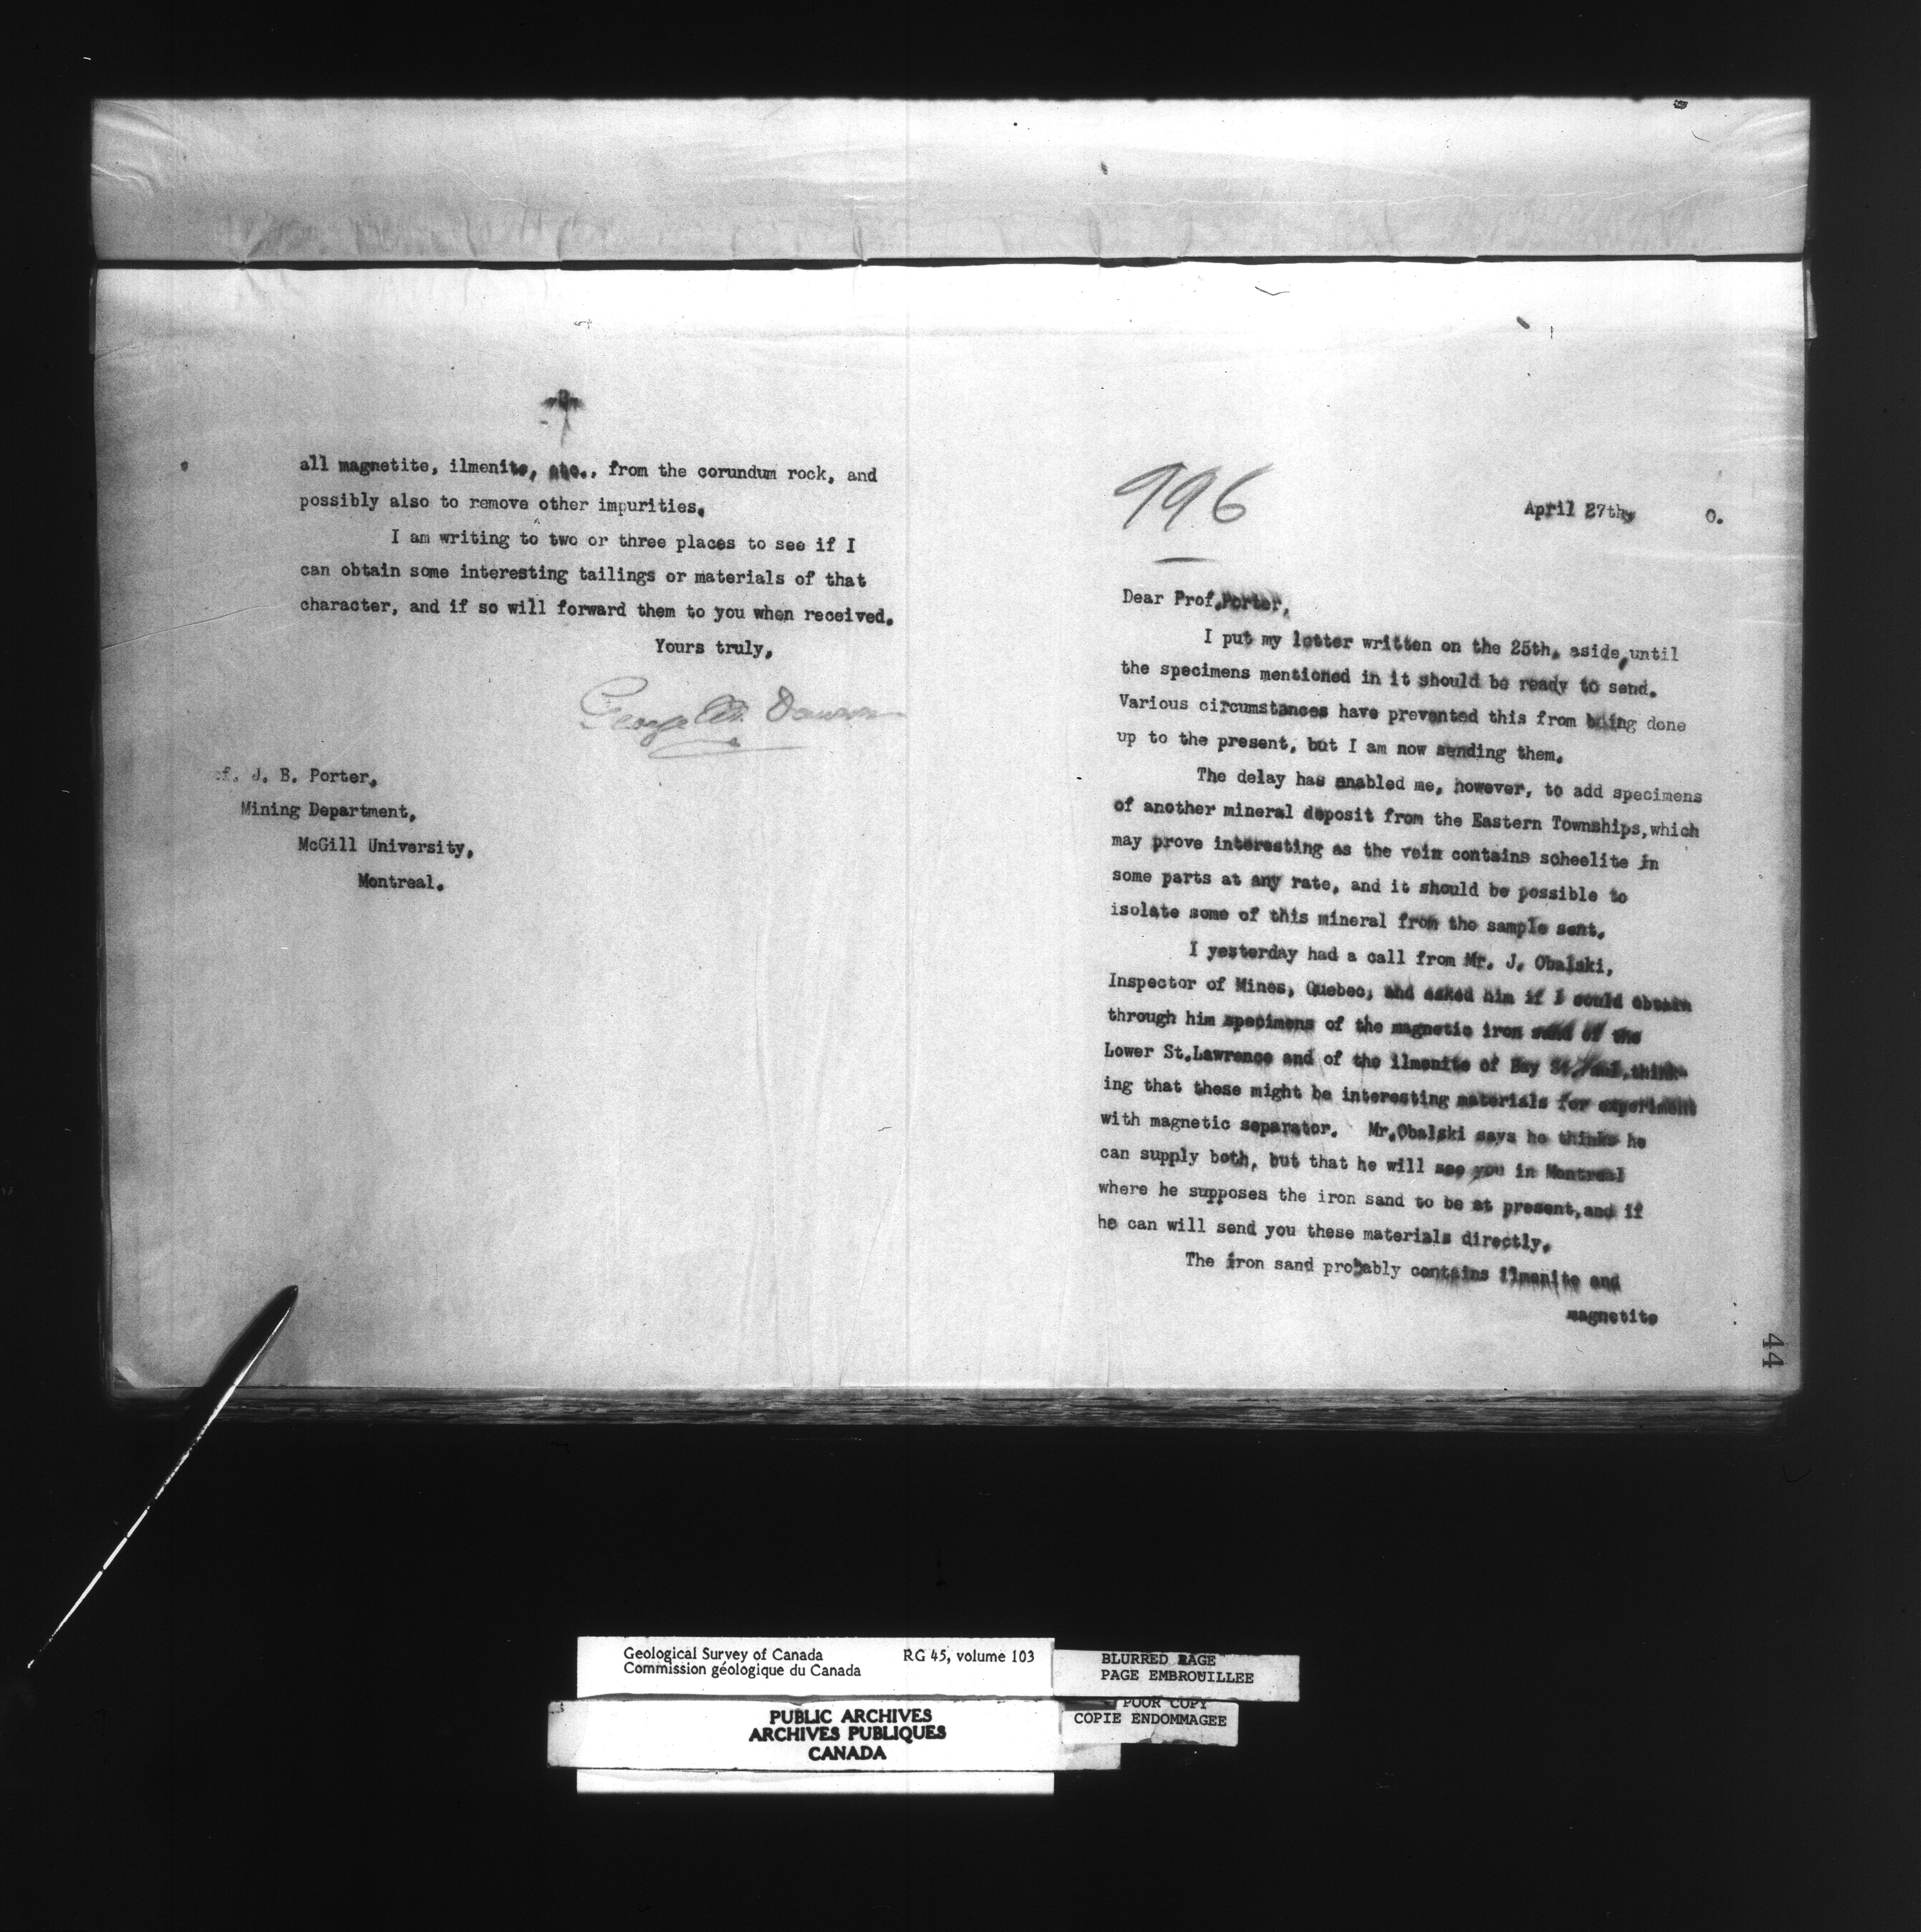 all magnetite, ilmenite, etc., from the corundum rock, and
possibly also to remove other impurities.
I am writing to two or three places to see if I
can obtain some interesting tailings or materials of that
character, and if so will forward them to you when received.
Yours truly,
George M. Dawson
J. B. Porter,
Mining Department,
McGill University,
Montreal.
996
April 27th, 0.
Dear Prof. Porter,
I put my letter written on the 25th, aside, until
the specimens mentioned in it should be ready to send.
Various circumstances have prevented this from being done
up to the present, but I am now sending them.
The delay has enabled me, however, to add specimens
of another mineral deposit from the Eastern Townships, which
may prove interesting as the vein contains scheelite in
some parts at any rate, and it should be possible to
isolate some of this mineral from the sample sent.
I yesterday had a call from Mr. J. Obalski,
Inspector of Mines, Quebec, and asked him if I could obtain
through him specimens of the magnetic iron sand of the
Lower St. Lawrence and of the ilmenite of Bay St. Paul, think-
ing that these might be interesting materials for experiment
with magnetic separator. Mr. Obalski says he thinks he
can supply both, but that he will see you in Montreal
where he supposes the iron sand to be at present, and if
he can will send you these materials directly.
The iron sand probably contains ilmenite and
magnetite
44
Geological Survey of Canada RG 45, volume 103
Commission géologique du Canada
BLURRED PAGE
PAGE EMBROUILLEE
POOR COPY
COPIE ENDOMMAGEE
PUBLIC ARCHIVES
ARCHIVES PUBLIQUES
CANADA